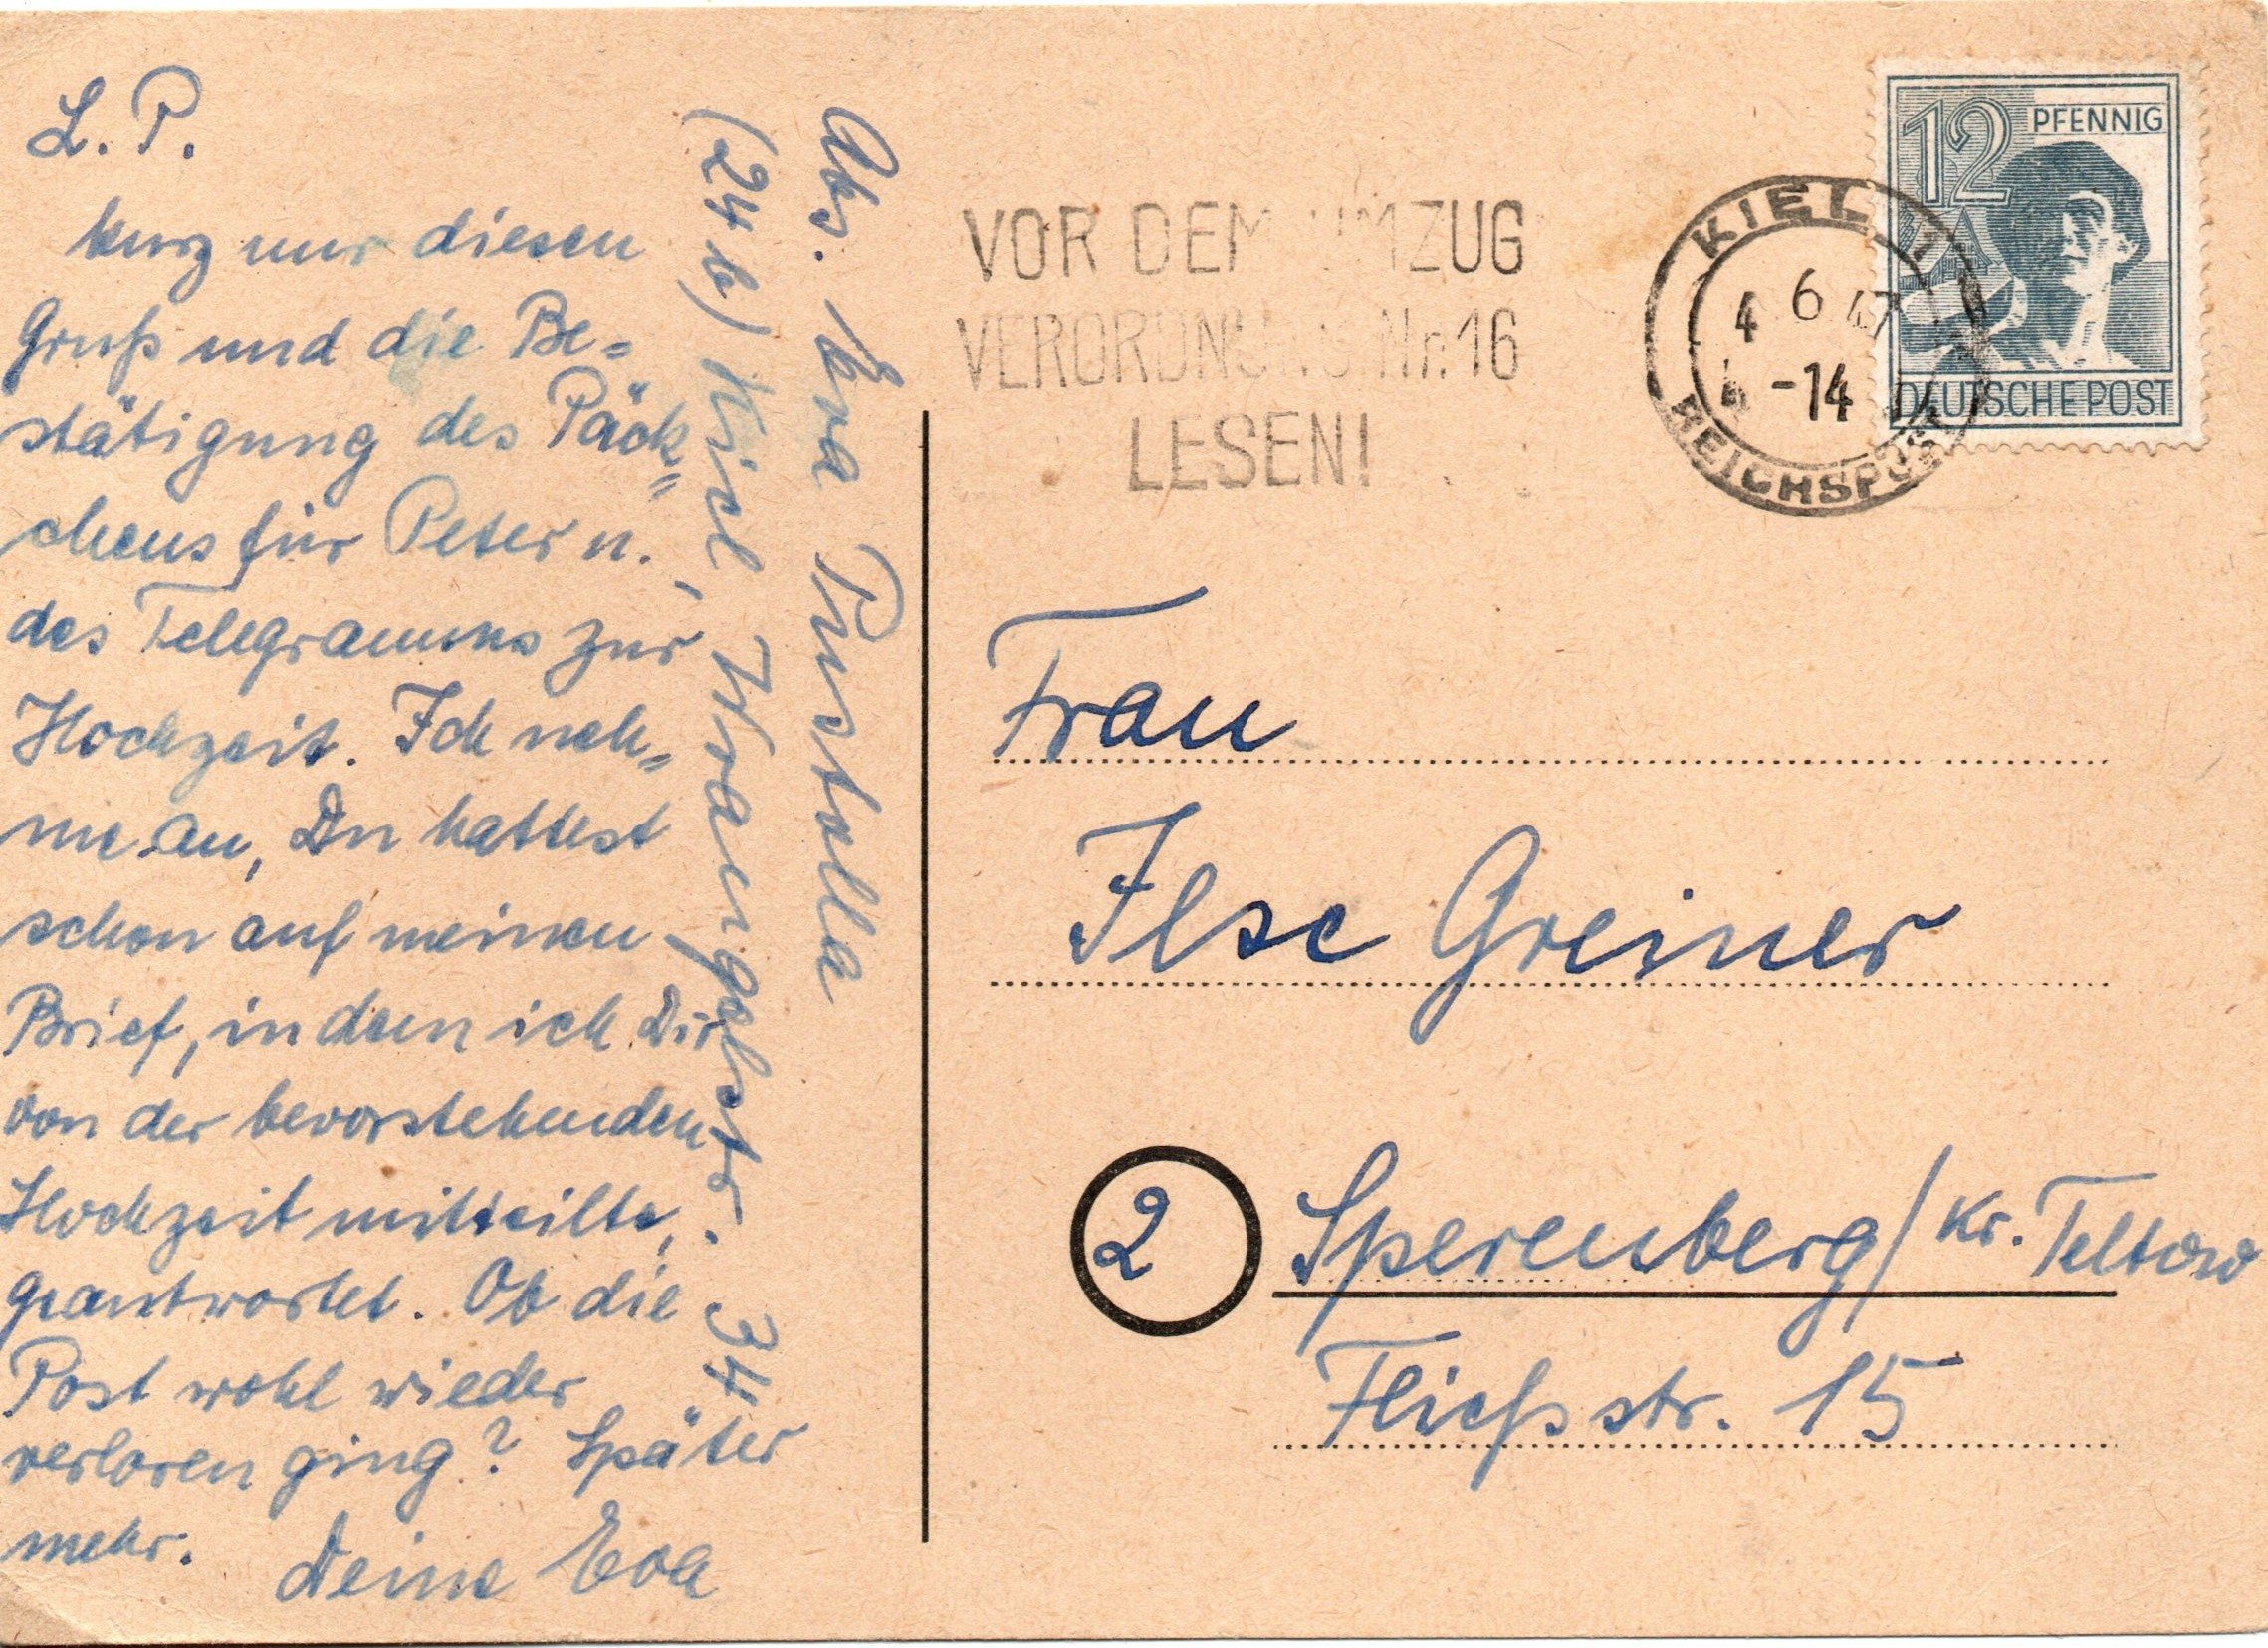 L. P.
kurz nur diesen
Gruß und die Be=
stätigung des Päck=
chens für Peter u.
des Telegramms zur
Hochzeit. Ich neh=
me an, Du hattest
schon auf meinen
Brief, in dem ich Dir
von der bevorstehenden
Hochzeit mitteilte,
geantwortet. Ob die
Post wohl wieder
verloren ging? Später
mehr. Deine Eva
Abs. Eva Pustolla
(24b) Kiel, Prangelstr. 34
VOR DEM UMZUG
VERORDNUNG Nr. 16
LESEN!
KIEL 1
4 6 47
-14
REICHSPOST
12 PFENNIG
DEUTSCHE POST
Frau
Ilse Greiner
2 Sperenberg/Kr. Teltow
Fließstr. 15